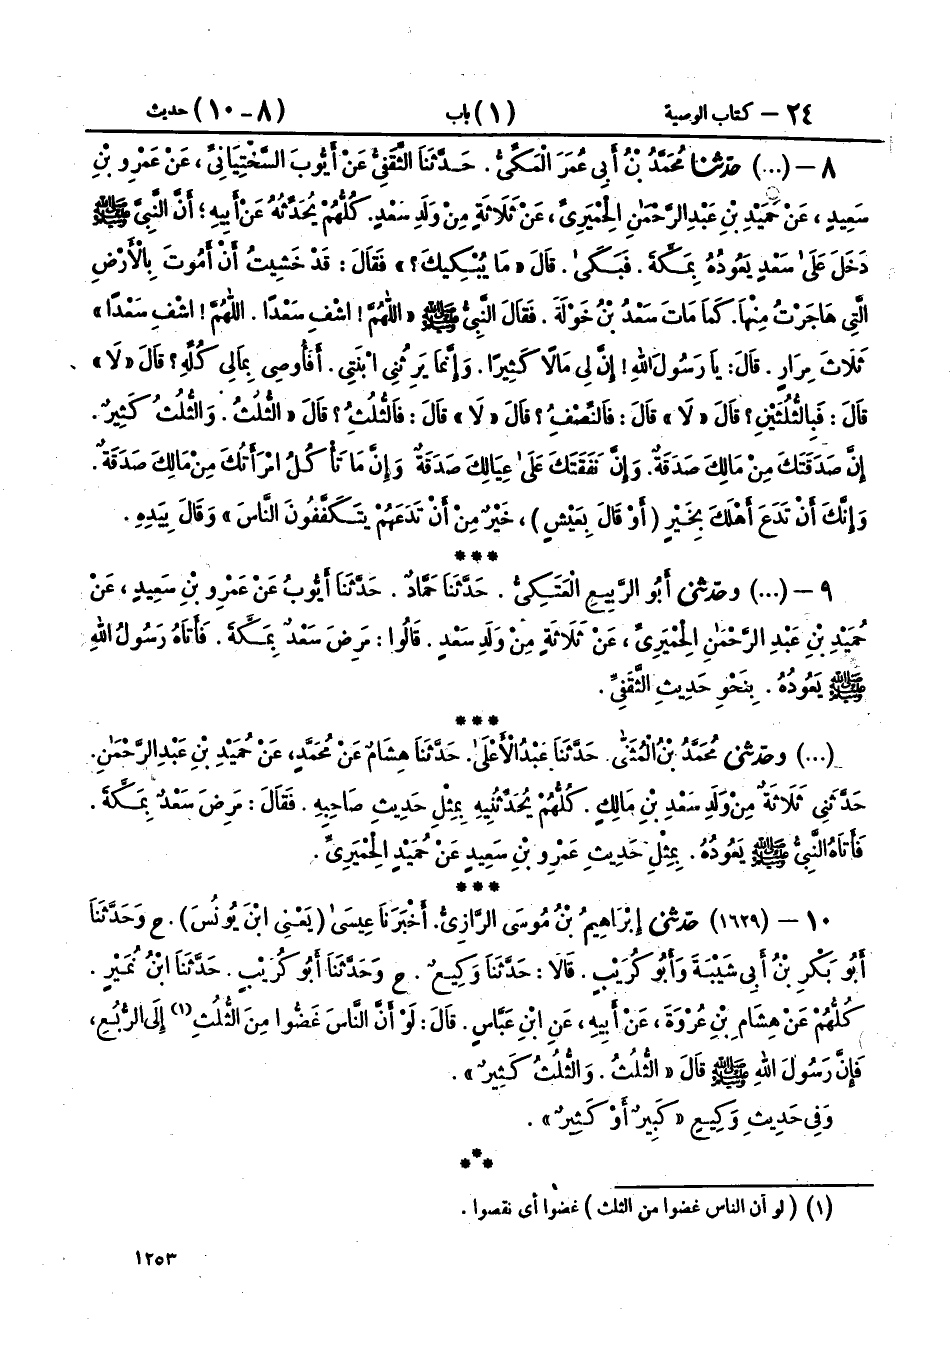 ٢٤ – كتاب الوصية (١) باب (٨ - ١٠) حديث
٨ – (...) حَدَّثَنَا مُحَمَّدُ بْنُ أَبِي عُمَرَ الْمَكِّيُّ . حَدَّثَنَا الثَّقَفِيُّ عَنْ أَيُّوبَ السَّخْتِيَانِيِّ ، عَنْ عَمْرِو بْنِ
سَعِيدٍ ، عَنْ حُمَيْدِ بْنِ عَبْدِ الرَّحْمَٰنِ الْحِمْيَرِيِّ ، عَنْ ثَلَاثَةٍ مِنْ وَلَدِ سَعْدٍ. كُلُّهُمْ يُحَدِّثُهُ عَنْ أَبِيهِ ؛ أَنَّ النَّبِيَّ ﷺ
دَخَلَ عَلَىٰ سَعْدٍ يَعُودُهُ بِمَكَّةَ . فَبَكَىٰ . قَالَ « مَا يُبْكِيكَ ؟ » فَقَالَ : قَدْ خَشِيتُ أَنْ أَمُوتَ بِالْأَرْضِ
الَّتِي هَاجَرْتُ مِنْهَا. كَمَا مَاتَ سَعْدُ بْنُ خَوْلَةَ . فَقَالَ النَّبِيُّ ﷺ « اللَّهُمَّ ! اشْفِ سَعْدًا . اللَّهُمَّ ! اشْفِ سَعْدًا »
ثَلَاثَ مِرَارٍ . قَالَ: يَا رَسُولَ اللهِ ! إِنَّ لِي مَالًا كَثِيرًا . وَإِنَّمَا يَرِثُنِي ابْنَتِي . أَفَأُوصِي بِمَالِي كُلِّهِ ؟ قَالَ « لَا »
قَالَ : فَبِالثُّلُثَيْنِ ؟ قَالَ « لَا » قَالَ : فَالنِّصْفُ ؟ قَالَ « لَا » قَالَ : فَالثُّلُثُ ؟ قَالَ « الثُّلُثُ . وَالثُّلُثُ كَثِيرٌ .
إِنَّ صَدَقَتَكَ مِنْ مَالِكَ صَدَقَةٌ. وَإِنَّ نَفَقَتَكَ عَلَىٰ عِيَالِكَ صَدَقَةٌ وَإِنَّ مَا تَأْكُلُ امْرَأَتُكَ مِنْ مَالِكَ صَدَقَةٌ .
وَإِنَّكَ أَنْ تَدَعَ أَهْلَكَ بِخَيْرٍ ( أَوْ قَالَ بِعَيْشٍ ) ، خَيْرٌ مِنْ أَنْ تَدَعَهُمْ يَتَكَفَّفُونَ النَّاسَ » وَقَالَ بِيَدِهِ .
***
٩ – (...) وَحَدَّثَنِي أَبُو الرَّبِيعِ الْعَتَكِيُّ . حَدَّثَنَا حَمَّادٌ . حَدَّثَنَا أَيُّوبُ عَنْ عَمْرِو بْنِ سَعِيدٍ ، عَنْ
حُمَيْدِ بْنِ عَبْدِ الرَّحْمَٰنِ الْحِمْيَرِيِّ ، عَنْ ثَلَاثَةٍ مِنْ وَلَدِ سَعْدٍ . قَالُوا : مَرِضَ سَعْدٌ بِمَكَّةَ . فَأَتَاهُ رَسُولُ اللهِ
ﷺ يَعُودُهُ . بِنَحْوِ حَدِيثِ الثَّقَفِيِّ .
***
(...) وَحَدَّثَنِي مُحَمَّدُ بْنُ الْمُثَنَّىٰ. حَدَّثَنَا عَبْدُ الْأَعْلَىٰ. حَدَّثَنَا هِشَامٌ عَنْ مُحَمَّدٍ، عَنْ حُمَيْدِ بْنِ عَبْدِ الرَّحْمَٰنِ.
حَدَّثَنِي ثَلَاثَةٌ مِنْ وَلَدِ سَعْدِ بْنِ مَالِكٍ . كُلُّهُمْ يُحَدِّثُنِيهِ بِمِثْلِ حَدِيثِ صَاحِبِهِ . فَقَالَ : مَرِضَ سَعْدٌ بِمَكَّةَ .
فَأَتَاهُ النَّبِيُّ ﷺ يَعُودُهُ . بِمِثْلِ حَدِيثِ عَمْرِو بْنِ سَعِيدٍ عَنْ حُمَيْدٍ الْحِمْيَرِيِّ .
***
١٠ – (١٦٢٩) حَدَّثَنِي إِبْرَاهِيمُ بْنُ مُوسَى الرَّازِيُّ. أَخْبَرَنَا عِيسَىٰ ( يَعْنِي ابْنَ يُونُسَ ) . ح وَحَدَّثَنَا
أَبُو بَكْرِ بْنُ أَبِي شَيْبَةَ وَأَبُو كُرَيْبٍ . قَالَا : حَدَّثَنَا وَكِيعٌ . ح وَحَدَّثَنَا أَبُو كُرَيْبٍ . حَدَّثَنَا ابْنُ نُمَيْرٍ .
كُلُّهُمْ عَنْ هِشَامِ بْنِ عُرْوَةَ ، عَنْ أَبِيهِ ، عَنِ ابْنِ عَبَّاسٍ . قَالَ : لَوْ أَنَّ النَّاسَ غَضُّوا مِنَ الثُّلُثِ(١) إِلَى الرُّبُعِ،
فَإِنَّ رَسُولَ اللهِ ﷺ قَالَ « الثُّلُثُ . وَالثُّلُثُ كَثِيرٌ » .
وَفِي حَدِيثِ وَكِيعٍ « كَبِيرٌ أَوْ كَثِيرٌ » .
***
(١) ( لو أن الناس غضوا من الثلث ) غضوا أى نقصوا .
١٢٥٣